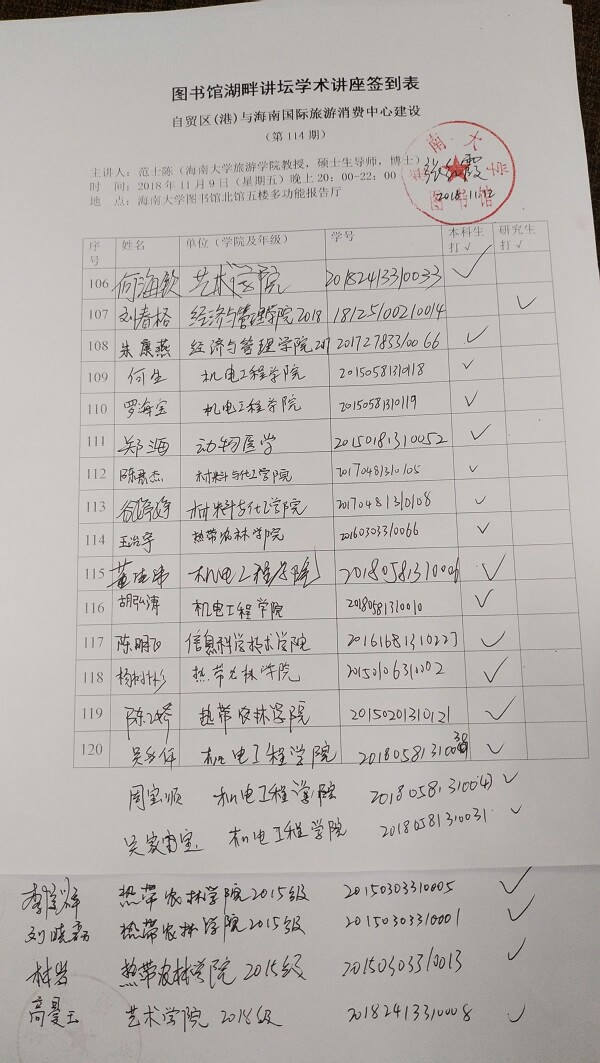 图书馆湖畔讲坛学术讲座签到表
自贸区(港)与海南国际旅游消费中心建设
（第 114 期）
主讲人：范士陈（海南大学旅游学院教授，硕士生导师，博士）
时 间：2018 年 11 月 9 日（星期五）晚上 20：00-22：00
地 点：海南大学图书馆北馆五楼多功能报告厅
海南大学图书馆
2018.11.12
序号 姓名 单位（学院及年级） 学号 本科生打√ 研究生打√
106 何海钦 艺术学院 20182413310033 √
107 刘春格 经济与管理学院2018 18125100210014 √
108 朱康燕 经济与管理学院2017 20172783310066 √
109 何生 机电工程学院 20150581310118 √
110 罗海宝 机电工程学院 20150581310119 √
111 郑海 动物医学 20150181310052 √
112 陈嘉杰 材料与化工学院 20170481310105 √
113 材料与化工学院 20170481310108 √
114 王治宇 热带农林学院 20160303310066 √
115 机电工程学院 20180581310006 √
116 胡弘涛 机电工程学院 20180581310010 √
117 陈明 信息科学技术学院 20161681310227 √
118 杨彬彬 热带农林学院 20150106310002 √
119 热带农林学院 20150201310121 √
120 机电工程学院 √
周宝顺 机电工程学院 20180581310041 √
吴家 机电工程学院 20180581310031 √
热带农林学院2015级 20150303310005 √
刘晓 热带农林学院2015级 20150303310001 √
林岩 热带农林学院2015级 20150303310013 √
高曼玉 艺术学院 2018级 20182413310008 √